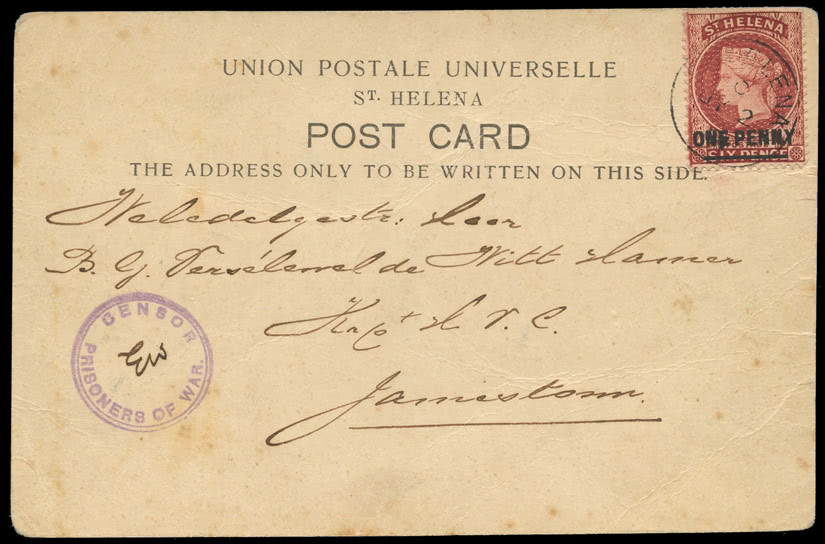 ST HELENA
UNION POSTALE UNIVERSELLE
ST. HELENA
POST CARD
THE ADDRESS ONLY TO BE WRITTEN ON THIS SIDE.
ONE PENNY
SIX PENCE
HELENA
Weledelgestr: Heer
B. G. Versélewel de Witt Hamer
Kapt H. V. C.
Jamestown.
CENSOR
PRISONERS OF WAR.